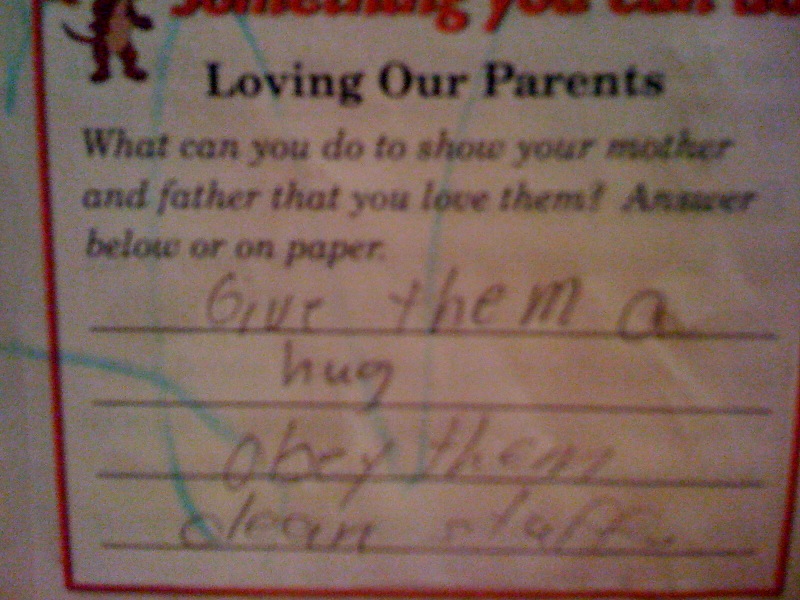 Something you can do
Loving Our Parents
What can you do to show your mother
and father that you love them? Answer
below or on paper.
Give them a
hug
obey them
clean stuff